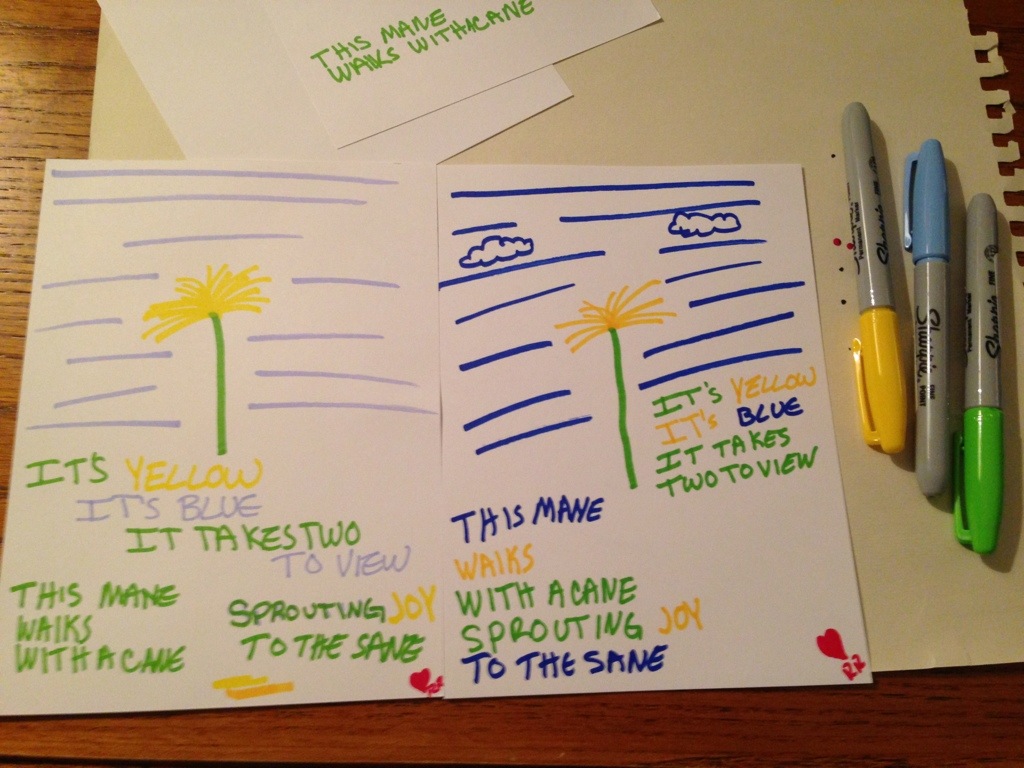 THIS MANE
WALKS WITH A CANE
IT'S YELLOW
IT'S BLUE
IT TAKES TWO
TO VIEW
THIS MANE
WALKS
WITH A CANE
SPROUTING JOY
TO THE SANE
IT'S YELLOW
IT'S BLUE
IT TAKES
TWO TO VIEW
THIS MANE
WALKS
WITH A CANE
SPROUTING JOY
TO THE SANE
RR
Sharpie
Sharpie
Sharpie